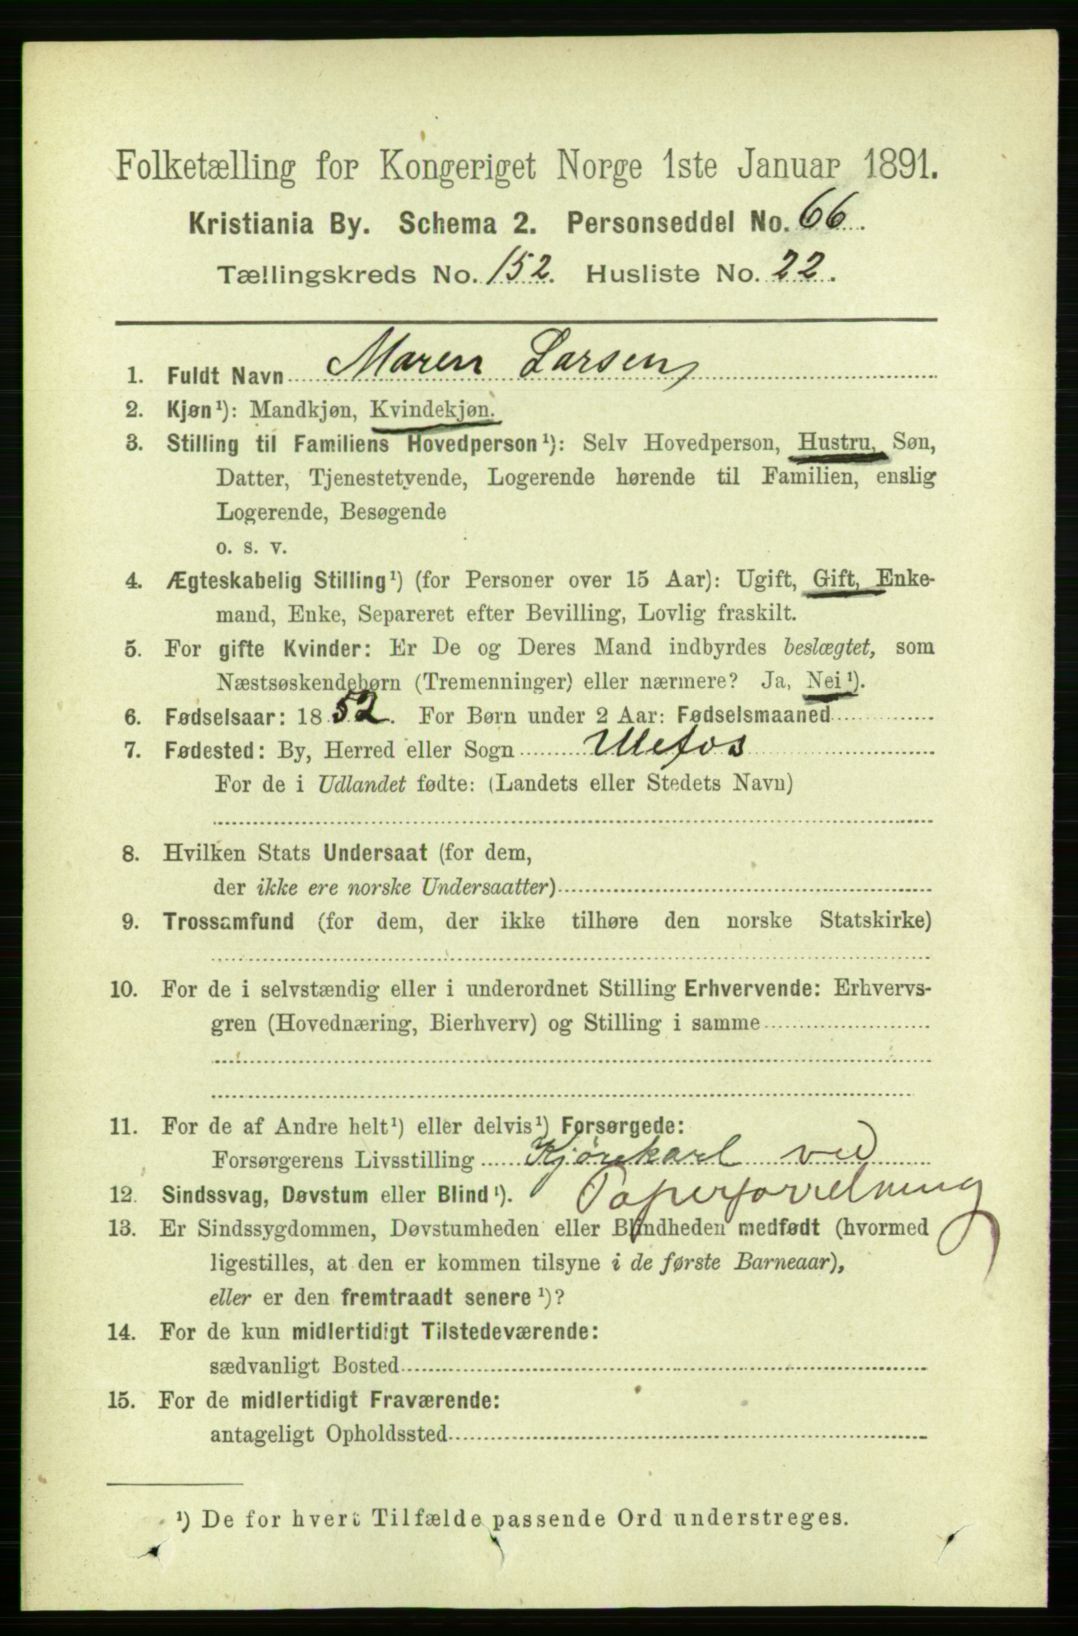 Folketælling for Kongeriget Norge 1ste Januar 1891.
Kristiania By. Schema 2. Personseddel No. 66.
Tællingskreds No. 152. Husliste No. 22.
1. Fuldt Navn Maren Larsen
2. Kjøn¹): Mandkjøn, Kvindekjøn.
3. Stilling til Familiens Hovedperson¹): Selv Hovedperson, Hustru, Søn,
Datter, Tjenestetyende, Logerende hørende til Familien, enslig
Logerende, Besøgende
o. s. v.
4. Ægteskabelig Stilling¹) (for Personer over 15 Aar): Ugift, Gift, Enke-
mand, Enke, Separeret efter Bevilling, Lovlig fraskilt.
5. For gifte Kvinder: Er De og Deres Mand indbyrdes beslægtet, som
Næstsøskendebørn (Tremenninger) eller nærmere? Ja, Nei¹).
6. Fødselsaar: 1852. For Børn under 2 Aar: Fødselsmaaned
7. Fødested: By, Herred eller Sogn Ulefos
For de i Udlandet fødte: (Landets eller Stedets Navn)
8. Hvilken Stats Undersaat (for dem,
der ikke ere norske Undersaatter)
9. Trossamfund (for dem, der ikke tilhøre den norske Statskirke)
10. For de i selvstændig eller i underordnet Stilling Erhvervende: Erhvervs-
gren (Hovednæring, Bierhverv) og Stilling i samme
11. For de af Andre helt¹) eller delvis¹) Forsørgede:
Forsørgerens Livsstilling Kjørekarl ved
12. Sindssvag, Døvstum eller Blind¹). Papirforretning
13. Er Sindssygdommen, Døvstumheden eller Blindheden medfødt (hvormed
ligestilles, at den er kommen tilsyne i de første Barneaar),
eller er den fremtraadt senere¹)?
14. For de kun midlertidigt Tilstedeværende:
sædvanligt Bosted
15. For de midlertidigt Fraværende:
antageligt Opholdssted
¹) De for hvert Tilfælde passende Ord understreges.